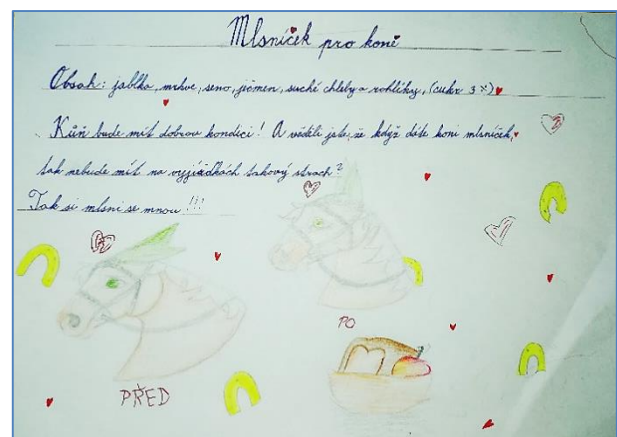 Mlsníček pro koně
Obsah: jablka, mrkve, seno, ječmen, suché chleby a rohlíky, (cukr 3 x)
Kůň bude mít dobrou kondici! A věděli jste, že když dáte koni mlsníček,
tak nebude mít na vyjížďkách takový strach?
Tak si mlsni se mnou!!!
PO
PŘED